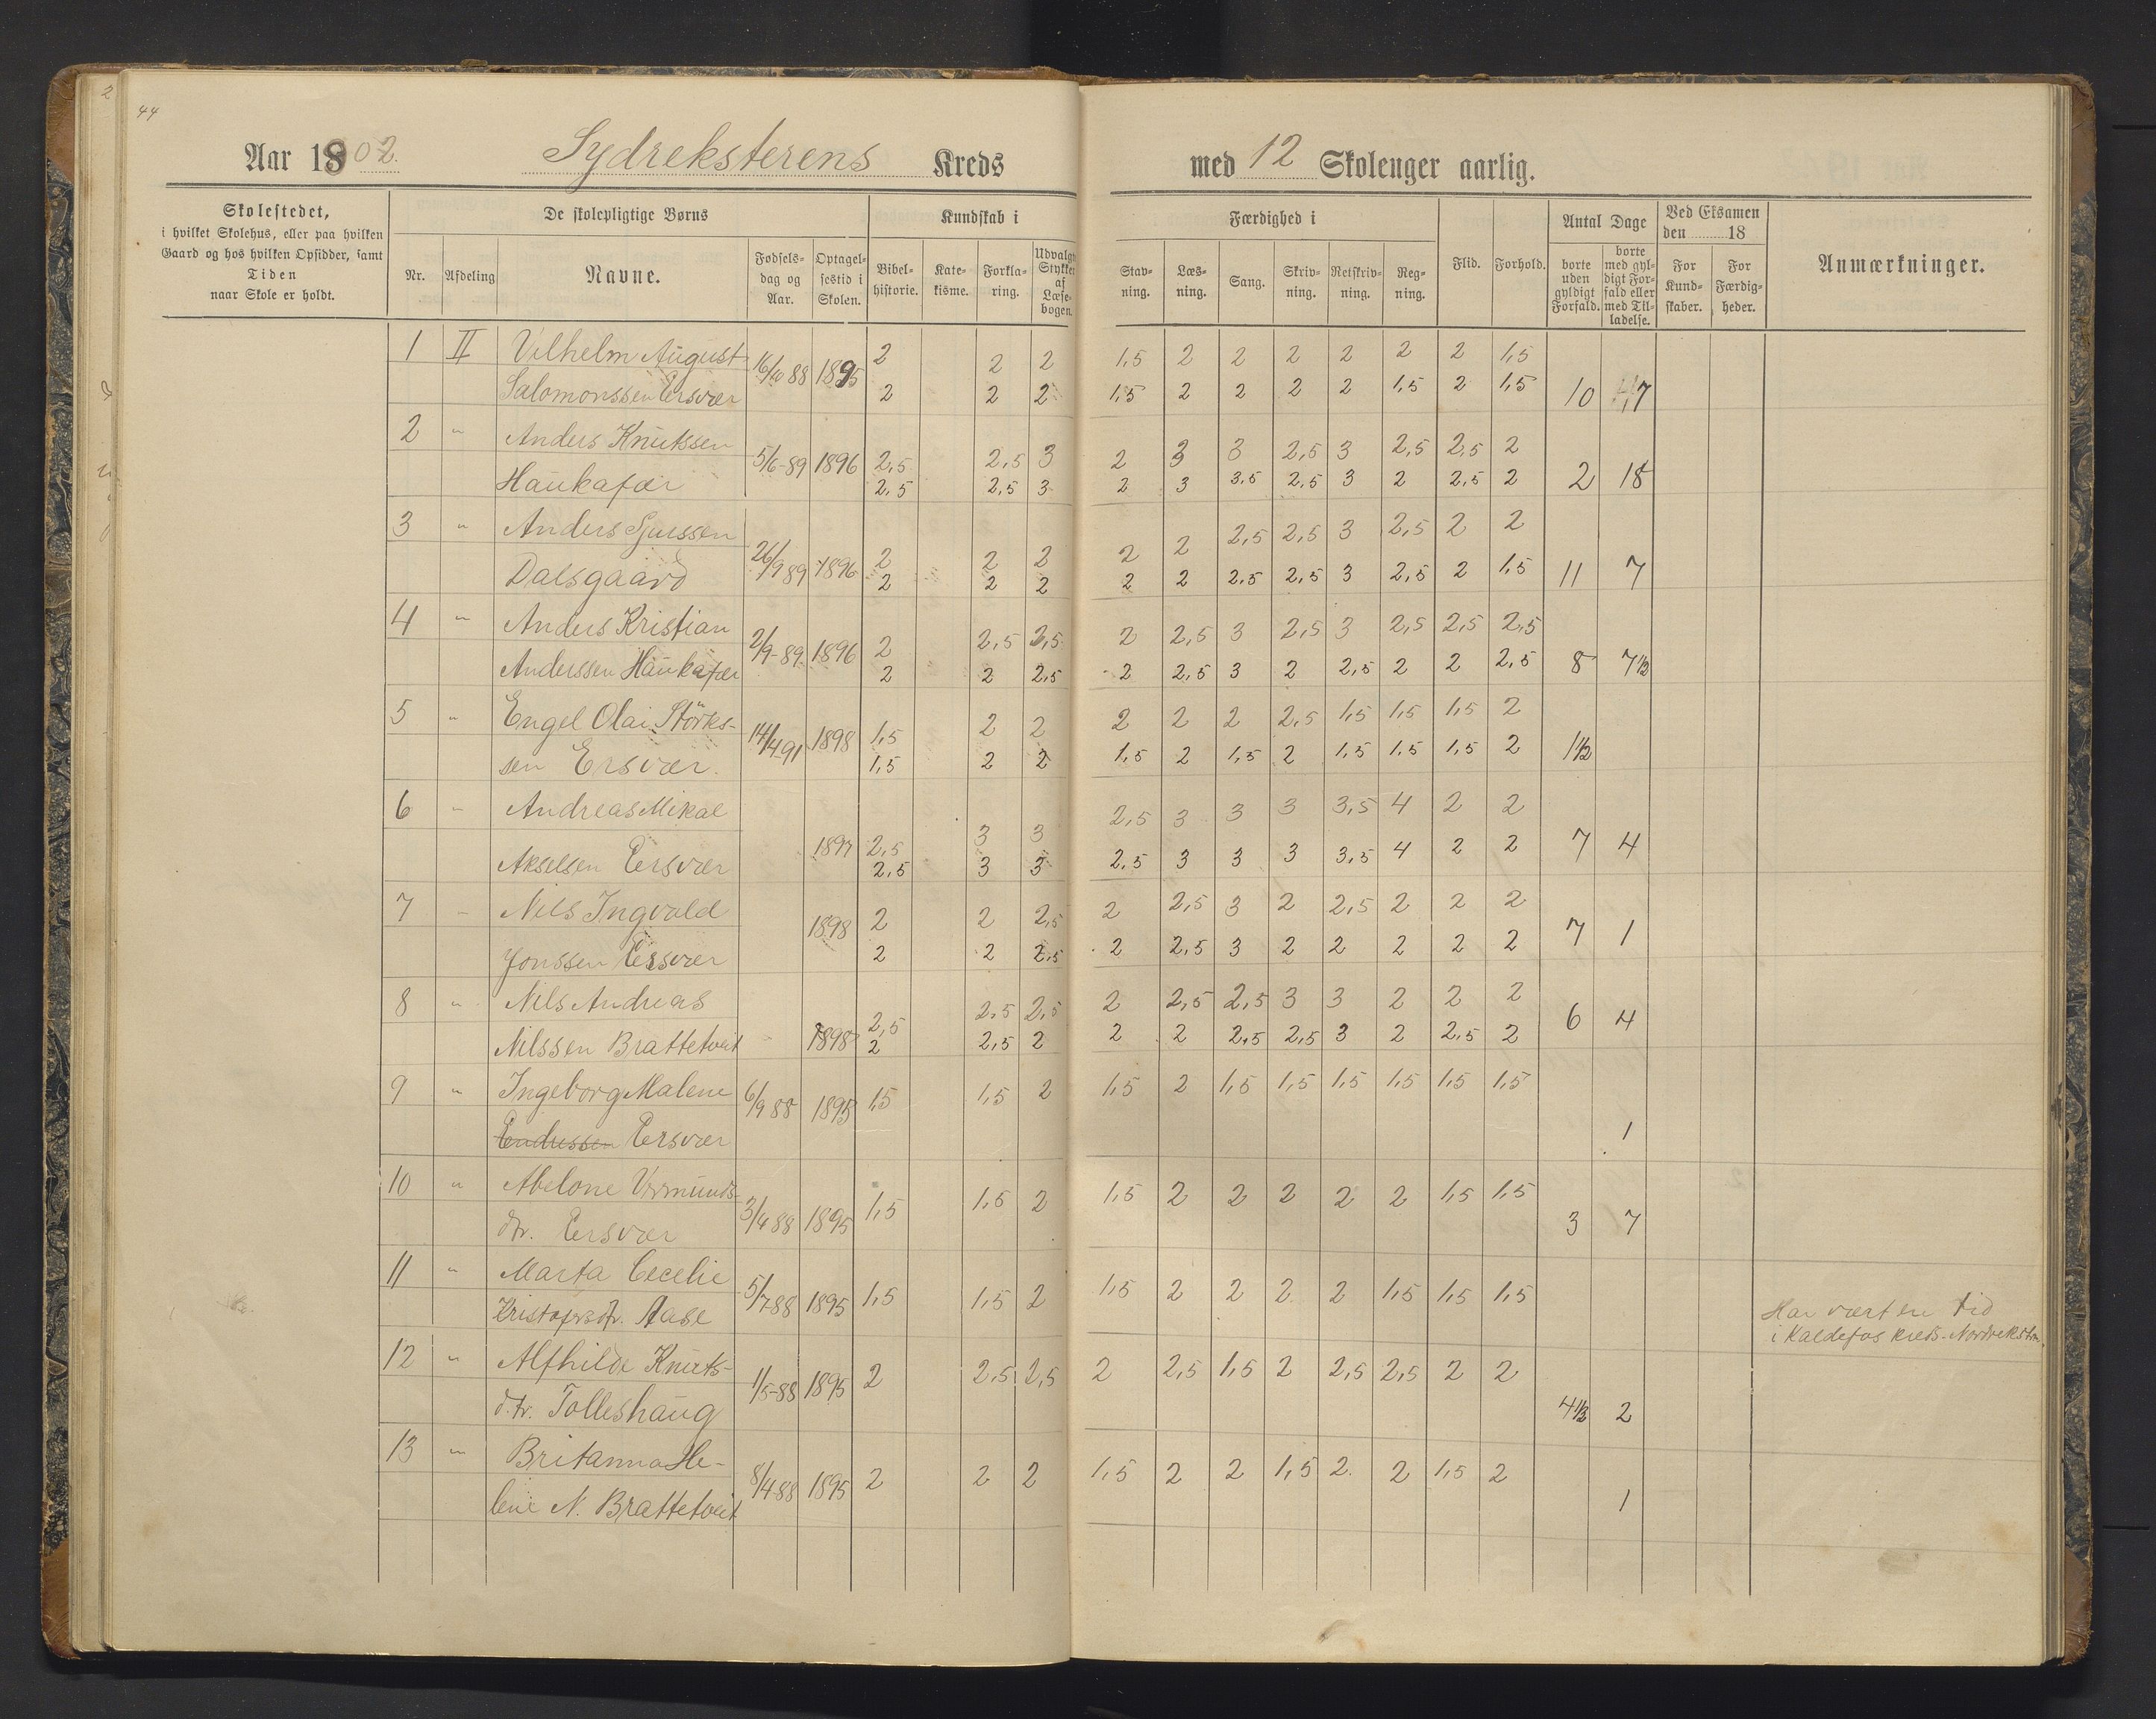 44
Aar 1902. Sydreksterens Kreds med 12 Skolenger aarlig.
Skolestedet,
i hvilket Skolehus, eller paa hvilken
Gaard og hos hvilken Opsidder, samt
Tiden
naar Skole er holdt.
De skolepligtige Børns
Nr. Afdeling Navne. Fødselsdag og Aar. Optagelsestid i Skolen.
Kundskab i
Bibelhistorie. Katekisme. Forklaring. Udvalgte Stykker af Læsebogen.
Færdighed i
Stavning. Læsning. Sang. Skrivning. Retskrivning. Regning.
Flid. Forhold.
Antal Dage
borte uden gyldigt Forfald. borte med gyldigt Forfald eller med Tilladelse.
Ved Eksamen den 18
For Kundskaber. For Færdigheder.
Anmærkninger.
1 II Vilhelm August 2 2 2 1,5 2 2 2 2 2 2 1,5
Salomonssen Ersvær 88 1895 2 2 2 1,5 2 2 2 2 1,5 2 1,5 10 7
2 " Anders Knutssen 5/6-89 1896 2,5 2,5 3 2 3 3 2,5 3 2,5 2,5 2
Haukafær 2,5 2,5 3 2 3 3,5 2,5 3 2 2,5 2 2 18
3 " Anders Sjurssen 26/9 89 1896 2 2 2 2 2 2,5 2,5 3 2,5 2 2
Dalsgaard 2 2 2 2 2 2,5 2,5 3 2,5 2 1,5 11 7
4 " Anders Kristian 2/9-89 1896 2 2,5 2,5 2 2,5 3 2,5 3 2,5 2,5 2,5
Anderssen Haukafær 2 2 2,5 2 2,5 3 2 2,5 2 2 2,5 8 7½
5 " Engel Olai Störks- 14/4 91 1898 1,5 2 2 2 2 2 2,5 1,5 1,5 1,5 2
sen Ersvær. 1,5 2 2 1,5 2 1,5 2 1,5 1,5 1,5 2 1½
6 " Andreas Mikal 1897 2,5 3 3 2,5 3 3 3 3,5 4 2 2
Akselsen Ersvær 2,5 3 3 2,5 3 3 3 3,5 4 2 2 7 4
7 " Nils Ingvald 1898 2 2 2,5 2 2,5 3 2 2,5 2 2 2
Jonssen Ersvær 2 2 2,5 2 2,5 3 2 2 2 2 2 7 1
8 " Nils Andreas 2,5 2,5 2,5 2 2,5 2,5 3 3 2 2 2
Nilssen Brattetveit 1898 2 2,5 2 2 2 2,5 2,5 3 2 2,5 2 6 4
9 " Ingeborg Malene 6/9 88 1895 1,5 1,5 2 1,5 2 1,5 1,5 1,5 1,5 1,5 1,5
Endressen Ersvær 1
10 " Abelone Vermunds- 3/4 88 1895 1,5 1,5 2 1,5 2 2 2 2 2 1,5 1,5
dtr. Ersvær 3 7
11 " Marta Cecelie 5/7-88 1895 1,5 1,5 2 1,5 2 2 2 2 1,5 1,5 1,5
Kristofersdtr. Aase
Har vært en tid
i Kaldefos kreds-Nordreksteren
12 " Alfhilde Knuts- 1/5-88 1895 2 2,5 2,5 2 2,5 1,5 2 2,5 2,5 2 2
d.tr. Tolleshaug 4½ 2
13 " Britanna He- 8/4-88 1895 2 2 2 1,5 2 2 1,5 2 2 1,5 2
lene N. Brattetveit 1